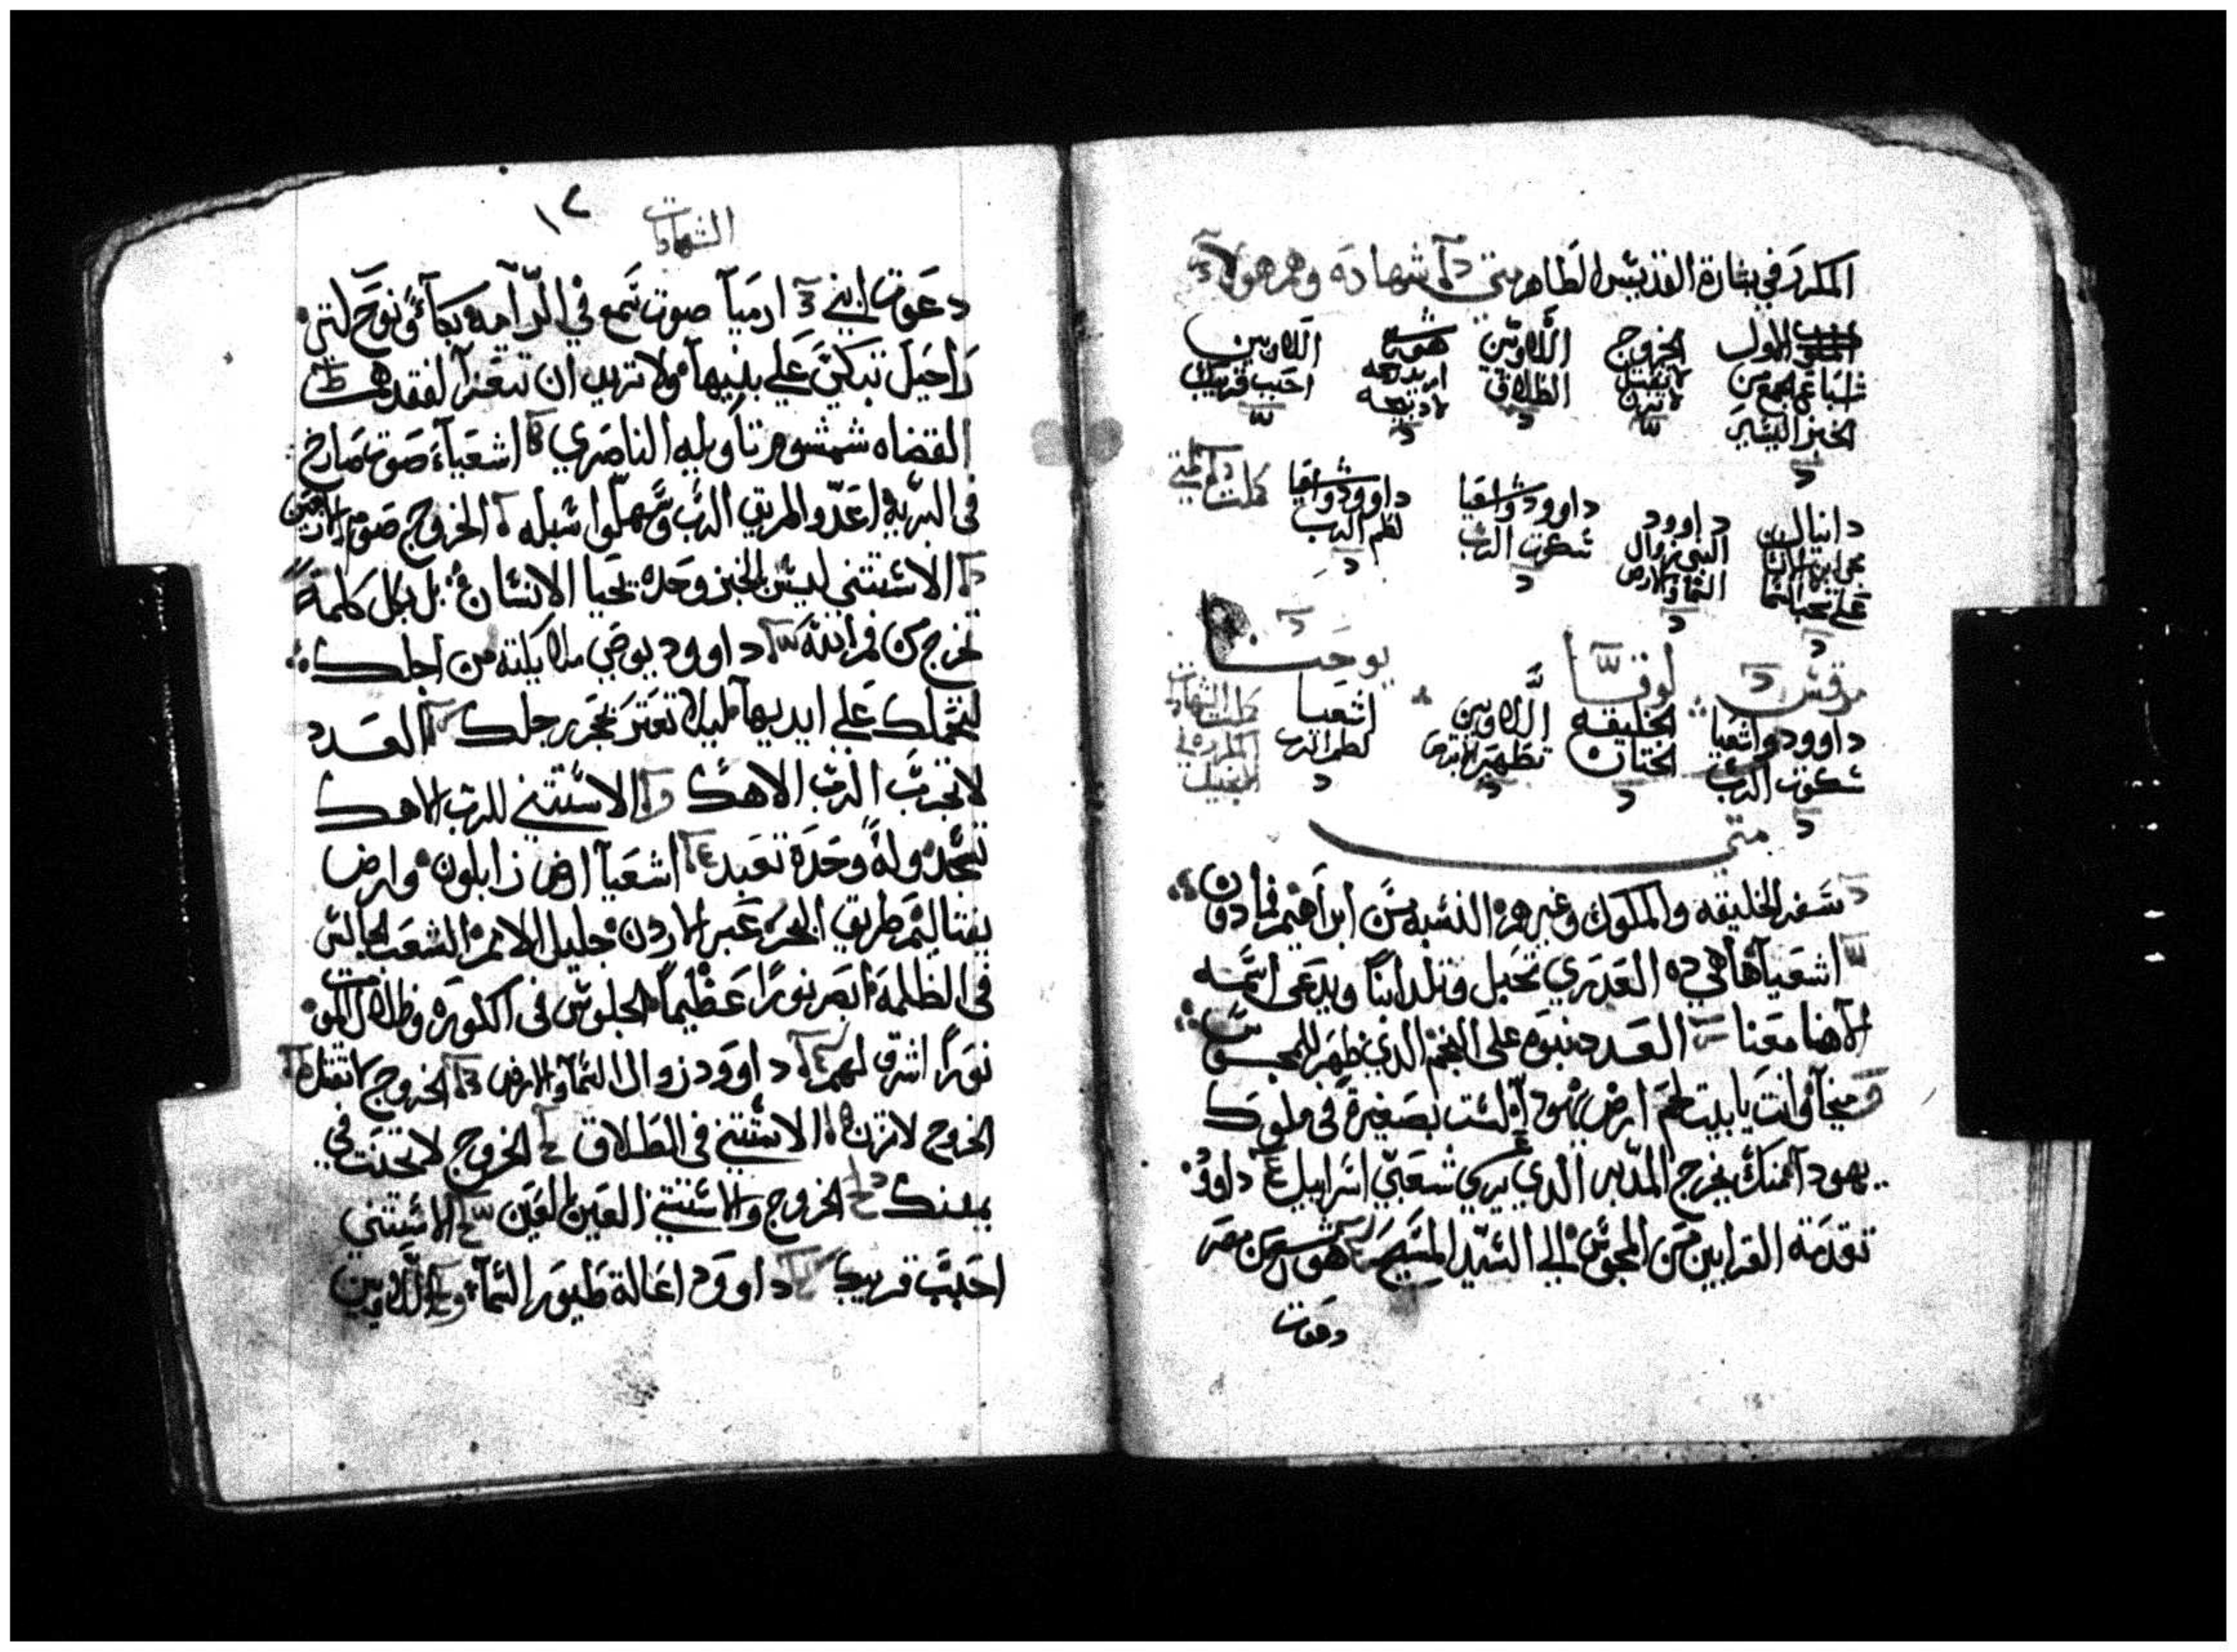 المكرر في بشارة القديس الطاهر متي شهاده وهم هولاء
الملوك الاول
شبابهم الجمع من
الخبز اليسير
الخروج
لا تقتل
لا تزن
اللاويين
الطلاق
هوشع
اريد رحمه
لا دبيحه
اللاويين
احبب قريبك
دانيال
مجي ابن الانسان
علي سحاب السما
داوود
النبي زوال
السما والارض
داوود واشعيا
شكوت الرب
داوود واشعيا
لطم الرب
كملت متي
مرقس
داوود واشعيا
شكوت الرب
لوقا
الخليقه
الختان
اللاويين
تطهير الابرص
يوحنا
اشعيا
لطم الرب
كملت الشهادات
المكرره في
الانجيل
متي
سفر الخليقه والملوك وغيرهم النسبه من ابراهيم فما دون
اشعيا ها هي ده العدري تحبل وتلد ابنا ويدعي اسمه
الاهنا معنا العدد نبوه علي النجم الدي ظهر للمجوس
ميخا وانت يا بيت لحم ارض يهودا لست بصغيرة في ملوك
يهودا منك يخرج المدبر الدي يرعي شعبي اسراييل داوود
تقدمة القرابين من المجوس الي السيد المسيح هوشع من مصر
دعوت
١٢
الشهادات
دعوت ابني ارميا صوت سمع في الرامه بكاء ونوح لتر
راحيل تبكي علي بنيها ولا تريد ان تتعزا لفقدهم
القضاه شمشوم تاويله الناصري اشعياء صوت صارخ
في البريه اعدوا طريق الرب وسهلوا سبله الخروج صوم الاربعين
الاستتني ليس بالخبز وحده يحيا الانسان بل بكل كلمة
تخرج من فم الله داوود يوصي ملايكته من اجلك
لتحملك علي ايديها ليلا تعتر بحجر رجلك العدد
لا تجرب الرب الاهك الاستتني للرب الاهك
تسجد وله وحده تعبد اشعيا ارض زابلون وارض
يفتاليم طريق البحر عبر الاردن جليل الامم الشعب الجالس
في الظلمه ابصر نورا عظيما الجلوس في الكوره وظلال الموت
نورا اشرق لهم داوود زوال السما والارض الخروج لا تقتل
الخروج لا تزن الاستتني في الطلاق الخروج لا تحنت في
يمينك الخروج والاستتني العين بالعين الاستتني
احبب قريبك داوود اعالة طيور السما اللاويين